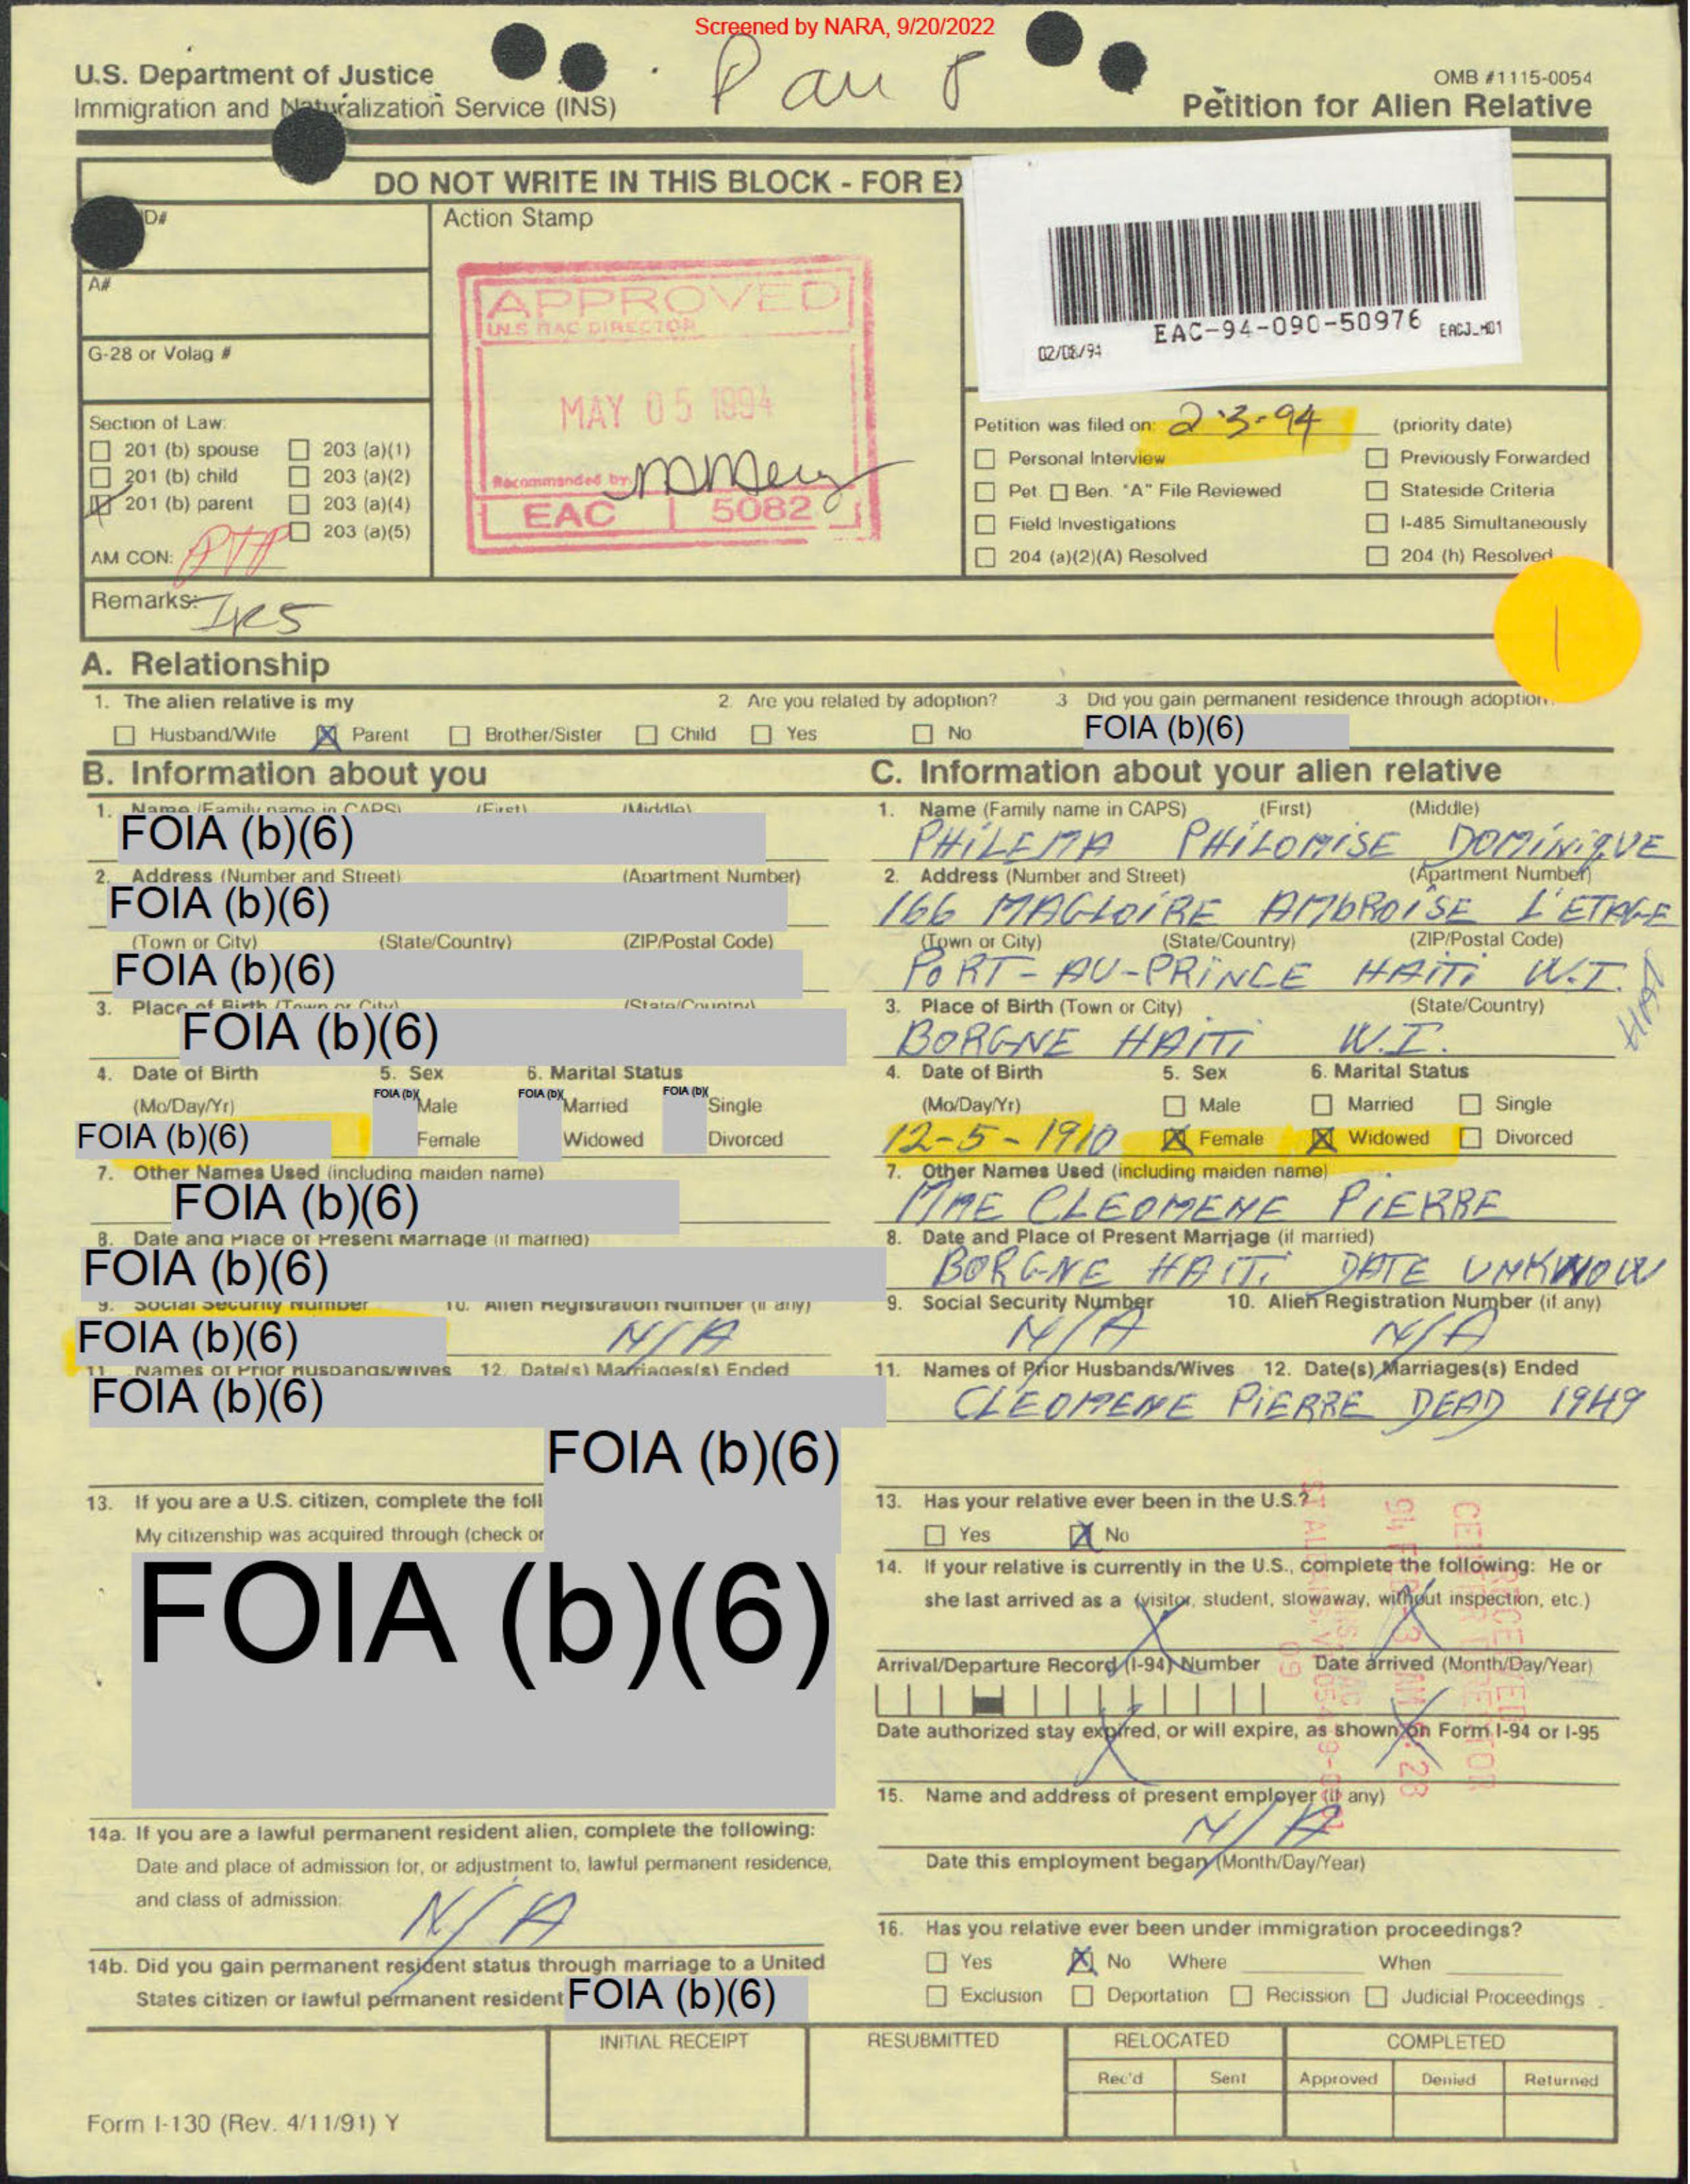 Screened by NARA, 9/20/2022
U.S. Department of Justice
Immigration and Naturalization Service (INS)
OMB #1115-0054
Petition for Alien Relative
DO NOT WRITE IN THIS BLOCK - FOR EX
D#
Action Stamp
A#
G-28 or Volag #
APPROVED
INS EAC DIRECTOR
MAY 05 1994
Recommended by
EAC 5082
EAC-94-090-50976
02/08/94
Section of Law:
201 (b) spouse 203 (a)(1)
201 (b) child 203 (a)(2)
201 (b) parent 203 (a)(4)
203 (a)(5)
AM CON: PTP
Petition was filed on: 2-3-94 (priority date)
Personal Interview Previously Forwarded
Pet. Ben. "A" File Reviewed Stateside Criteria
Field Investigations I-485 Simultaneously
204 (a)(2)(A) Resolved 204 (h) Resolved
Remarks: IR5
A. Relationship
1. The alien relative is my 2. Are you related by adoption? 3 Did you gain permanent residence through adoption
Husband/Wife Parent Brother/Sister Child Yes No FOIA (b)(6)
B. Information about you
1. Name (Family name in CAPS) (First) (Middle)
FOIA (b)(6)
2. Address (Number and Street) (Apartment Number)
FOIA (b)(6)
(Town or City) (State/Country) (ZIP/Postal Code)
FOIA (b)(6)
3. Place of Birth (Town or City) (State/Country)
FOIA (b)(6)
4. Date of Birth 5. Sex 6. Marital Status
(Mo/Day/Yr) FOIA (b)( Male FOIA (b)( Married FOIA (b)( Single
FOIA (b)(6) Female Widowed Divorced
7. Other Names Used (including maiden name)
FOIA (b)(6)
8. Date and Place of Present Marriage (if married)
FOIA (b)(6)
9. Social Security Number 10. Alien Registration Number (if any)
FOIA (b)(6) N/A
11. Names of Prior Husbands/Wives 12. Date(s) Marriages(s) Ended
FOIA (b)(6)
FOIA (b)(6)
13. If you are a U.S. citizen, complete the foll
My citizenship was acquired through (check or
FOIA (b)(6)
14a. If you are a lawful permanent resident alien, complete the following:
Date and place of admission for, or adjustment to, lawful permanent residence,
and class of admission:
N/A
14b. Did you gain permanent resident status through marriage to a United
States citizen or lawful permanent resident FOIA (b)(6)
C. Information about your alien relative
1. Name (Family name in CAPS) (First) (Middle)
PHILEMA PHILOMISE DOMINIQUE
2. Address (Number and Street) (Apartment Number)
166 MAGLOIRE AMBROISE L'ETAGE
(Town or City) (State/Country) (ZIP/Postal Code)
PORT-AU-PRINCE HAITI W.I.
3. Place of Birth (Town or City) (State/Country)
BORGNE HAITI W.I.
4. Date of Birth 5. Sex 6. Marital Status
(Mo/Day/Yr) Male Married Single
12-5-1910 Female Widowed Divorced
7. Other Names Used (including maiden name)
MME CLEOMENE PIERRE
8. Date and Place of Present Marriage (if married)
BORGNE HAITI DATE UNKNOW
9. Social Security Number 10. Alien Registration Number (if any)
N/A N/A
11. Names of Prior Husbands/Wives 12. Date(s) Marriages(s) Ended
CLEOMENE PIERRE DEAD 1949
13. Has your relative ever been in the U.S.?
Yes No
14. If your relative is currently in the U.S., complete the following: He or
she last arrived as a (visitor, student, stowaway, without inspection, etc.)
Arrival/Departure Record (I-94) Number Date arrived (Month/Day/Year)
Date authorized stay expired, or will expire, as shown on Form I-94 or I-95
15. Name and address of present employer (if any)
N/A
Date this employment began (Month/Day/Year)
16. Has you relative ever been under immigration proceedings?
Yes No Where When
Exclusion Deportation Recission Judicial Proceedings
INITIAL RECEIPT RESUBMITTED RELOCATED COMPLETED
Rec'd Sent Approved Denied Returned
Form I-130 (Rev. 4/11/91) Y